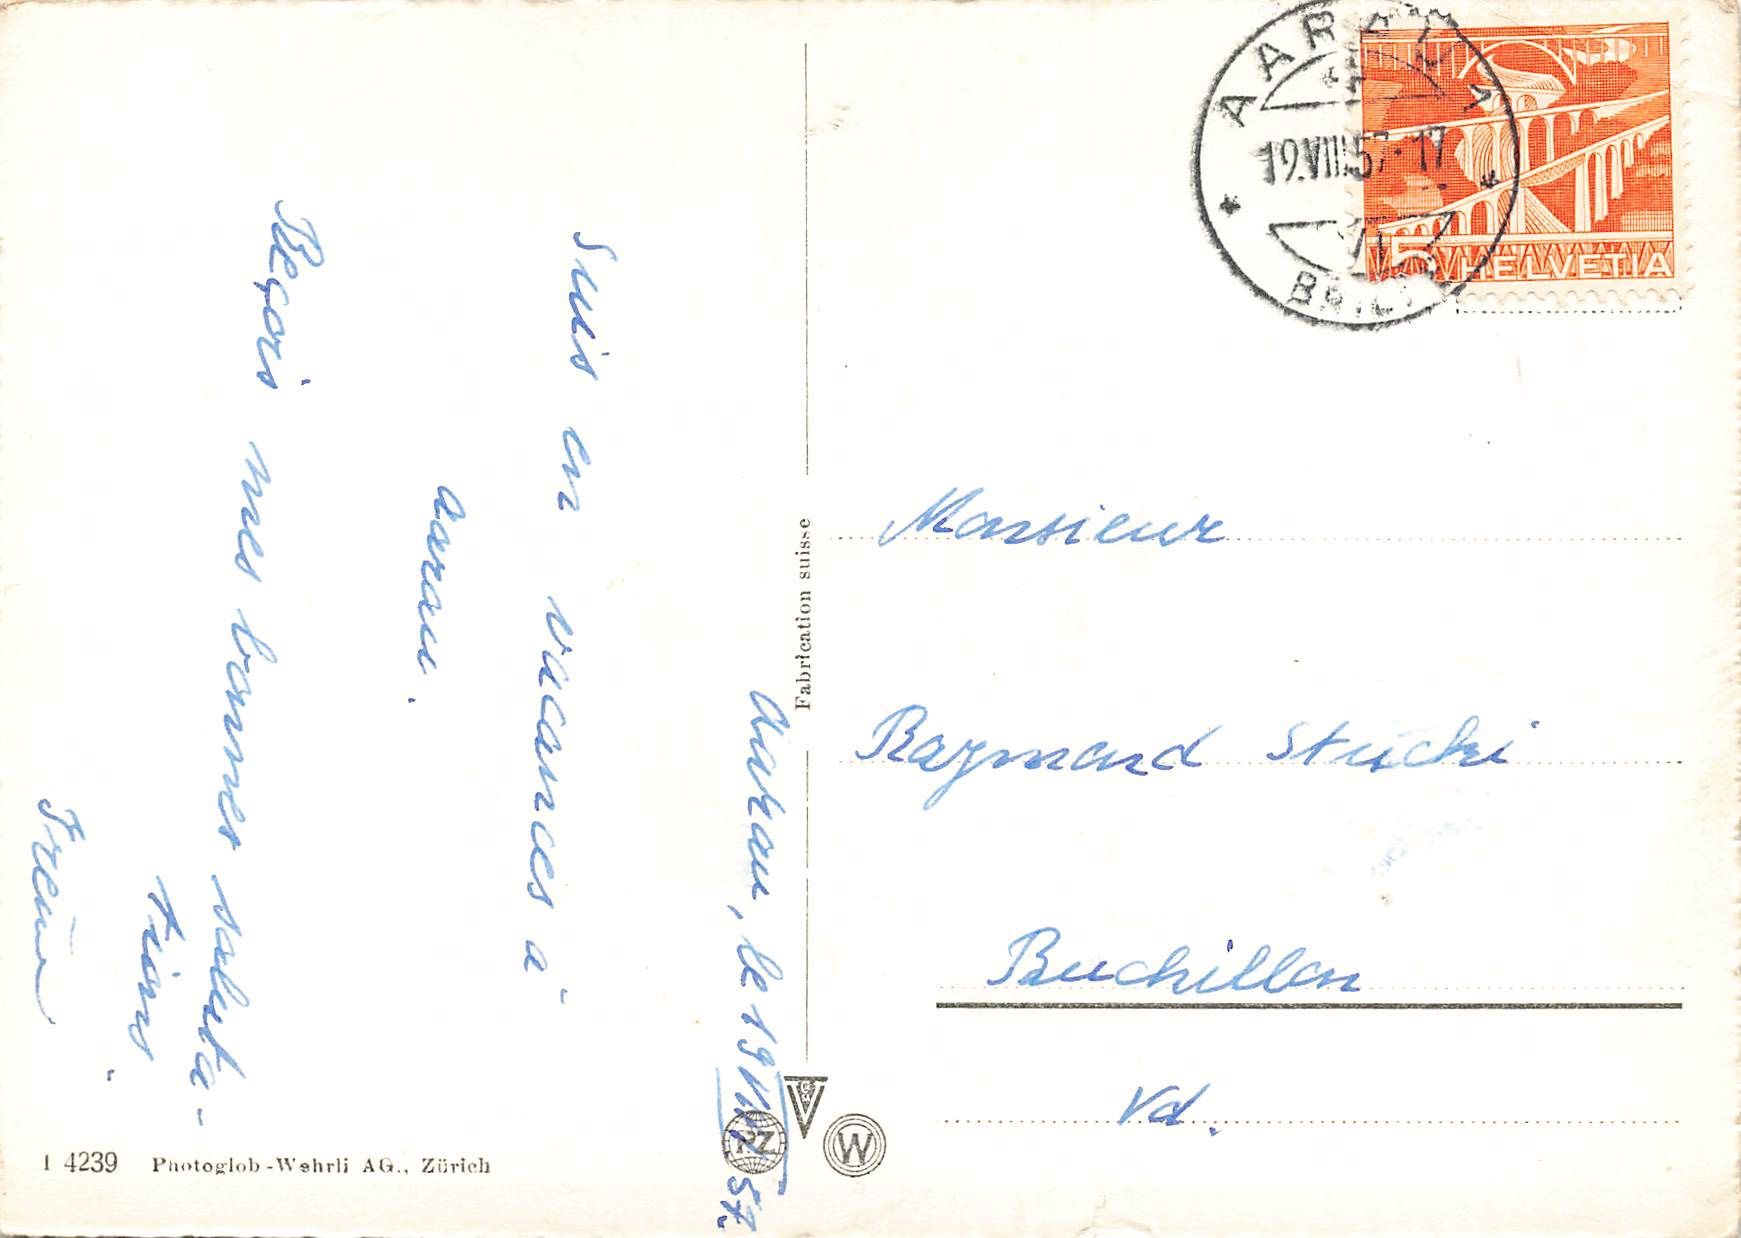 Aarau, le 19 VIII 57.
Suis en vacances à
Aarau.
Reçois mes bonnes saluta-
tions
Irène
Fabrication suisse
AARAU 1
19.VIII.57-17
BRIEF
5 HELVETIA
Monsieur
Raymond Stucki
Buchillon
Vd.
1 4239 Photoglob-Wehrli AG., Zürich
PZ
W